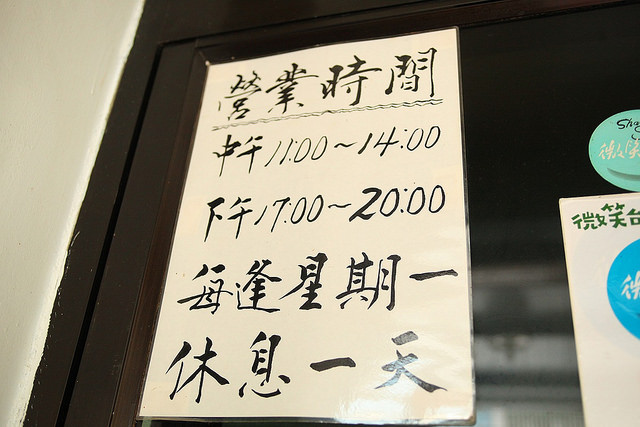 營業時間
中午 11:00～14:00
下午 17:00～20:00
每逢星期一
休息一天
微笑
微笑